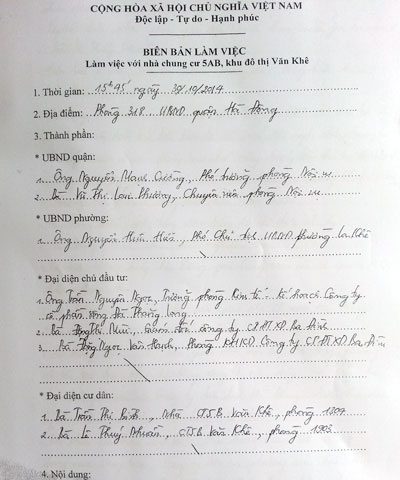 CỘNG HÒA XÃ HỘI CHỦ NGHĨA VIỆT NAM
Độc lập - Tự do - Hạnh phúc
BIÊN BẢN LÀM VIỆC
Làm việc với nhà chung cư 5AB, khu đô thị Văn Khê
1. Thời gian: 15h45' ngày 30/10/2014
2. Địa điểm: Phòng 318 UBND quận Hà Đông
3. Thành phần:
* UBND quận:
1. Ông Nguyễn Mạnh Cường, Phó trưởng phòng Nội vụ
2. Bà Vũ Thị Lan Phương, Chuyên viên phòng Nội vụ
* UBND phường:
1. Ông Nguyễn Hữu, Phó Chủ tịch UBND phường La Khê
* Đại diện chủ đầu tư:
1. Ông Trần Nguyên Ngọc, Trưởng phòng Kinh tế Kế hoạch Công ty
cổ phần Sông Đà Thăng Long
2. Bà, Giám đốc công ty CP ĐT XD Ba Đình
3. Bà Ngọc Vân, Phòng KHKD Công ty CP ĐT XD Ba Đình
* Đại diện cư dân:
1. Bà Trần Thị, Nhà CT5B Văn Khê, phòng 1804
2. Bà Lê Thuý, CT5B Văn Khê, phòng 1903
4. Nội dung: